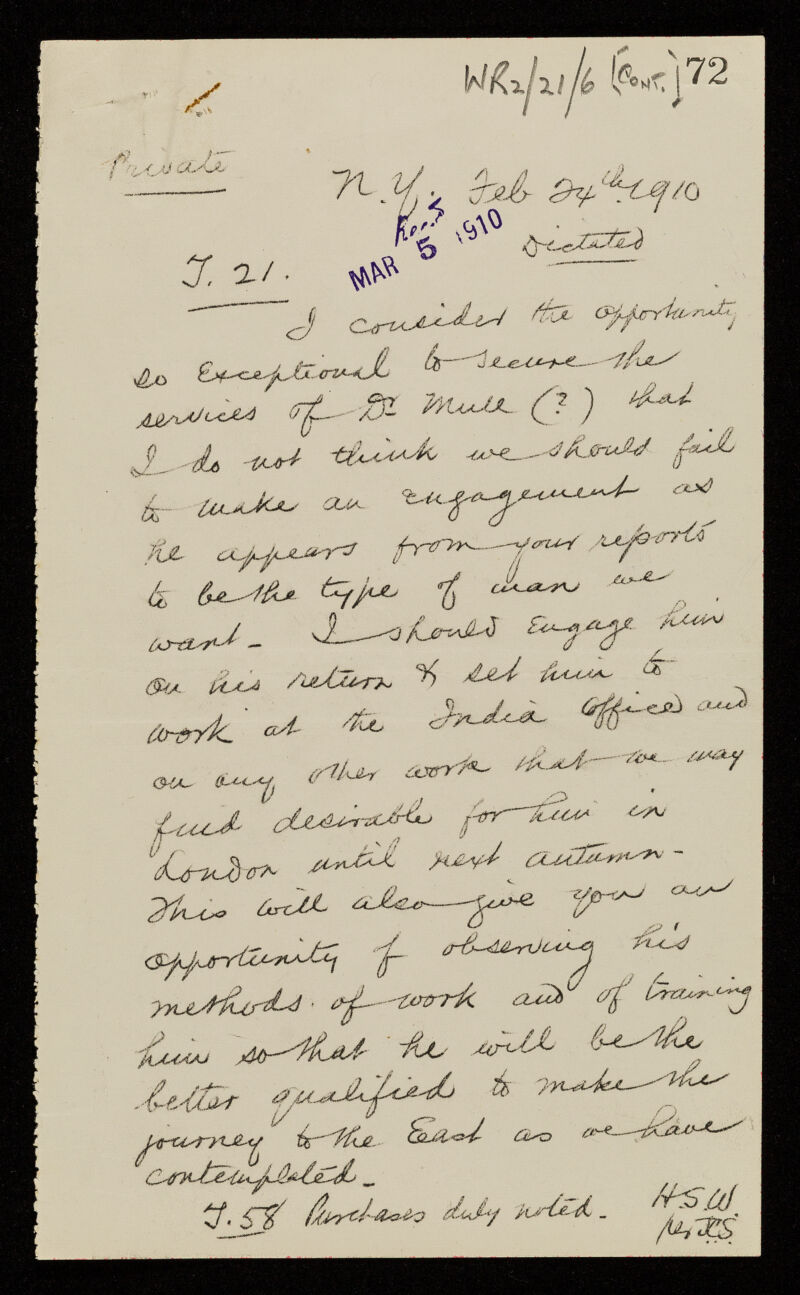 WR2/21/6 [CONT.] 72
Private
N.Y. Feb 24th 1910
Recd
MAR 5 1910
Dictated
T. 21.
I consider the opportunity
so Exceptional to secure the
services of Dr Mull (?) that
I do not think we should fail
to make an Engagement as
he appears from your reports
to be the type of man we
want - I should Engage him
on his return & set him to
work at the India Office and
on any other work that we may
find desirable for him in
London until next autumn -
This will also give you an
opportunity of observing his
methods of work and of training
him so that he will be the
better qualified to make the
journey to the East as we have
contemplated -
T.58 Purchases duly noted -
H.S.W.
per